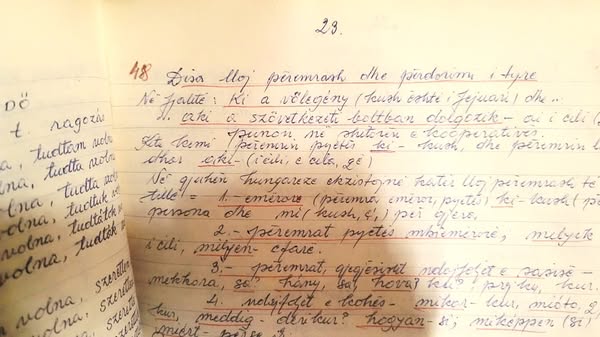 23.
48 Disa lloj përemrash dhe përdorimi i tyre
Në fjalitë: Ki a vőlegény (kush është i fejuari) dhe..
.. aki a szövetkezeti boltban dolgozik - ai i cili (
punon, në shitoren e kooperativës.
kemi përemrin pyetës ki - kush, dhe përemrin
dhor aki - (i cili, e cila, që)
Në gjuhën hungareze ekzistojnë katër lloj përemrash të
tillë = 1. - emërore (përemra emëror, pyetës) ki - kush (
persona dhe mi (kush, si,) për gjëra.
2. - përemrat pyetës mbiemërorë, melyek
i cili, milyen - çfarë.
3. - përemrat, gjegjësisht ndajfoljet e sasisë -
mekkora, sa? hány, sa, hová? ku? kur.
4. ndajfoljet e kohës - mikor - kur, mióta,
kur, meddig - derikur? hogyan - si; miképpen (si)
miért - përse
DŐ
t. ragozás
a, tudtam volna
na, tudta volna
lna, tudta volna
olna, tudtuk vol
volna, tudtátok
volna, tudták
volna, szerettem
volna, szerette
volna, szerette